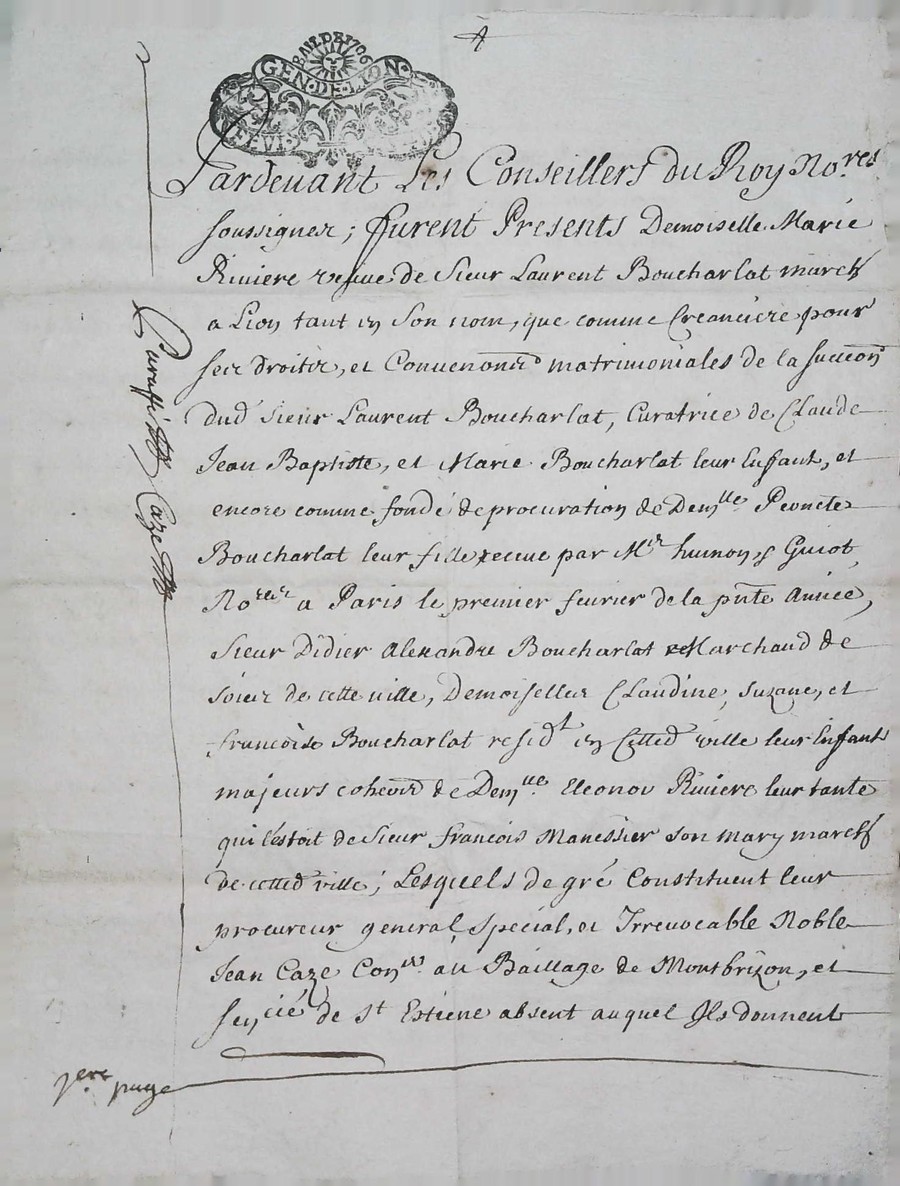 BAIL DE 1706
GEN·DE·LION·
Pardevant Les Conseillers du Roy No.res
soussignez; furent Presents Demoiselle Marie
Riviere vefve de Sieur Laurent Boucharlat march
a Lion tant en son nom, que comme Creanciere pour
ses droits, et Convenons matrimoniales de la succon
dud sieur Laurent Boucharlat, Curatrice de Claude
Jean Baptiste, et Marie Boucharlat leur Enfant, et
encore comme fondé de procuration de Demlle
Boucharlat leur fille receue par Mrs Guiot
Nores a Paris le premier fevrier de la pnte Année,
Sieur Didier Alexandre Boucharlat Marchand de
de cette ville, Demoiselles Claudine, Suzane, et
françoise Boucharlat residt en Cetted ville leur Enfant
majeurs coherd de Demlle Eleonor Riviere leur tante
qui l'estoit de Sieur françois Manessier son mary march
de cetted ville; Lesquels de gré Constituent leur
procureur general, special, et Irrevocable Noble
Jean Caze Coner au Baillage de Montbrizon, et
de St Estiene absent auquel Ils donnent
1ere page
Paraffé Caze